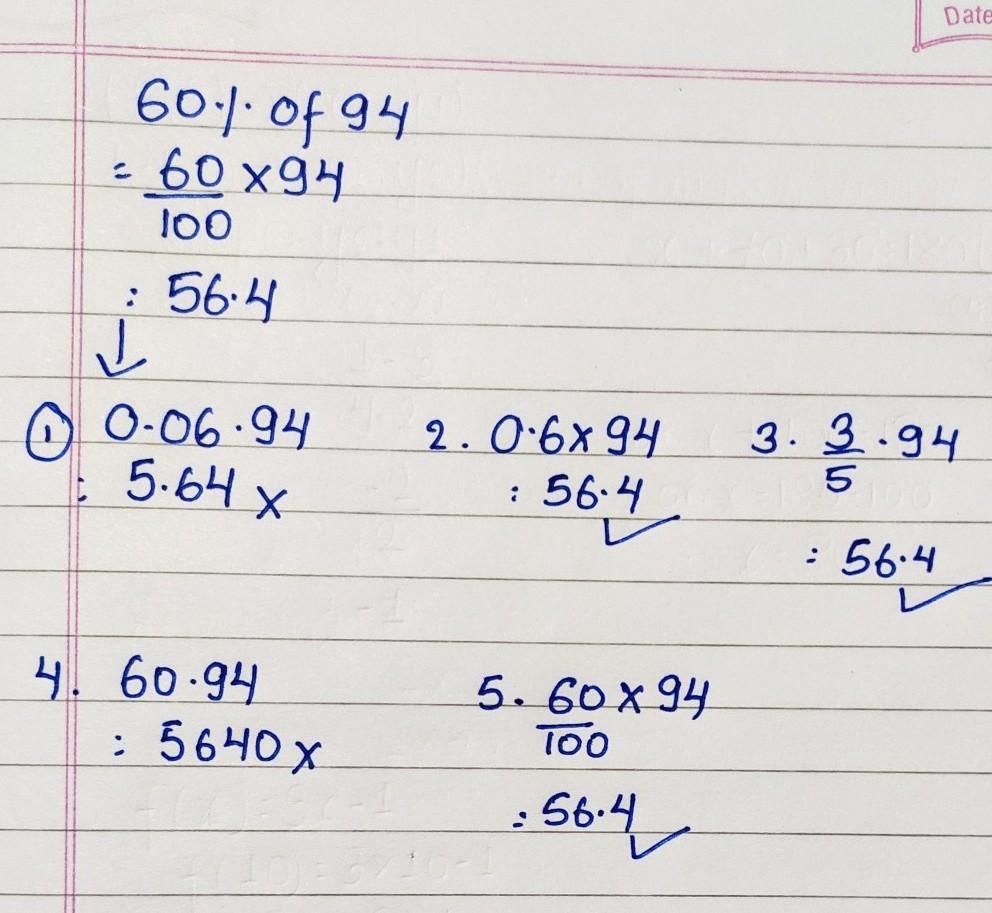 Date
60% of 94
= 60/100 × 94
: 56.4
↓
① 0.06 · 94
: 5.64 ×
2. 0.6 × 94
: 56.4 ✓
3. 3/5 · 94
: 56.4 ✓
4. 60 · 94
: 5640 ×
5. 60/100 × 94
: 56.4 ✓